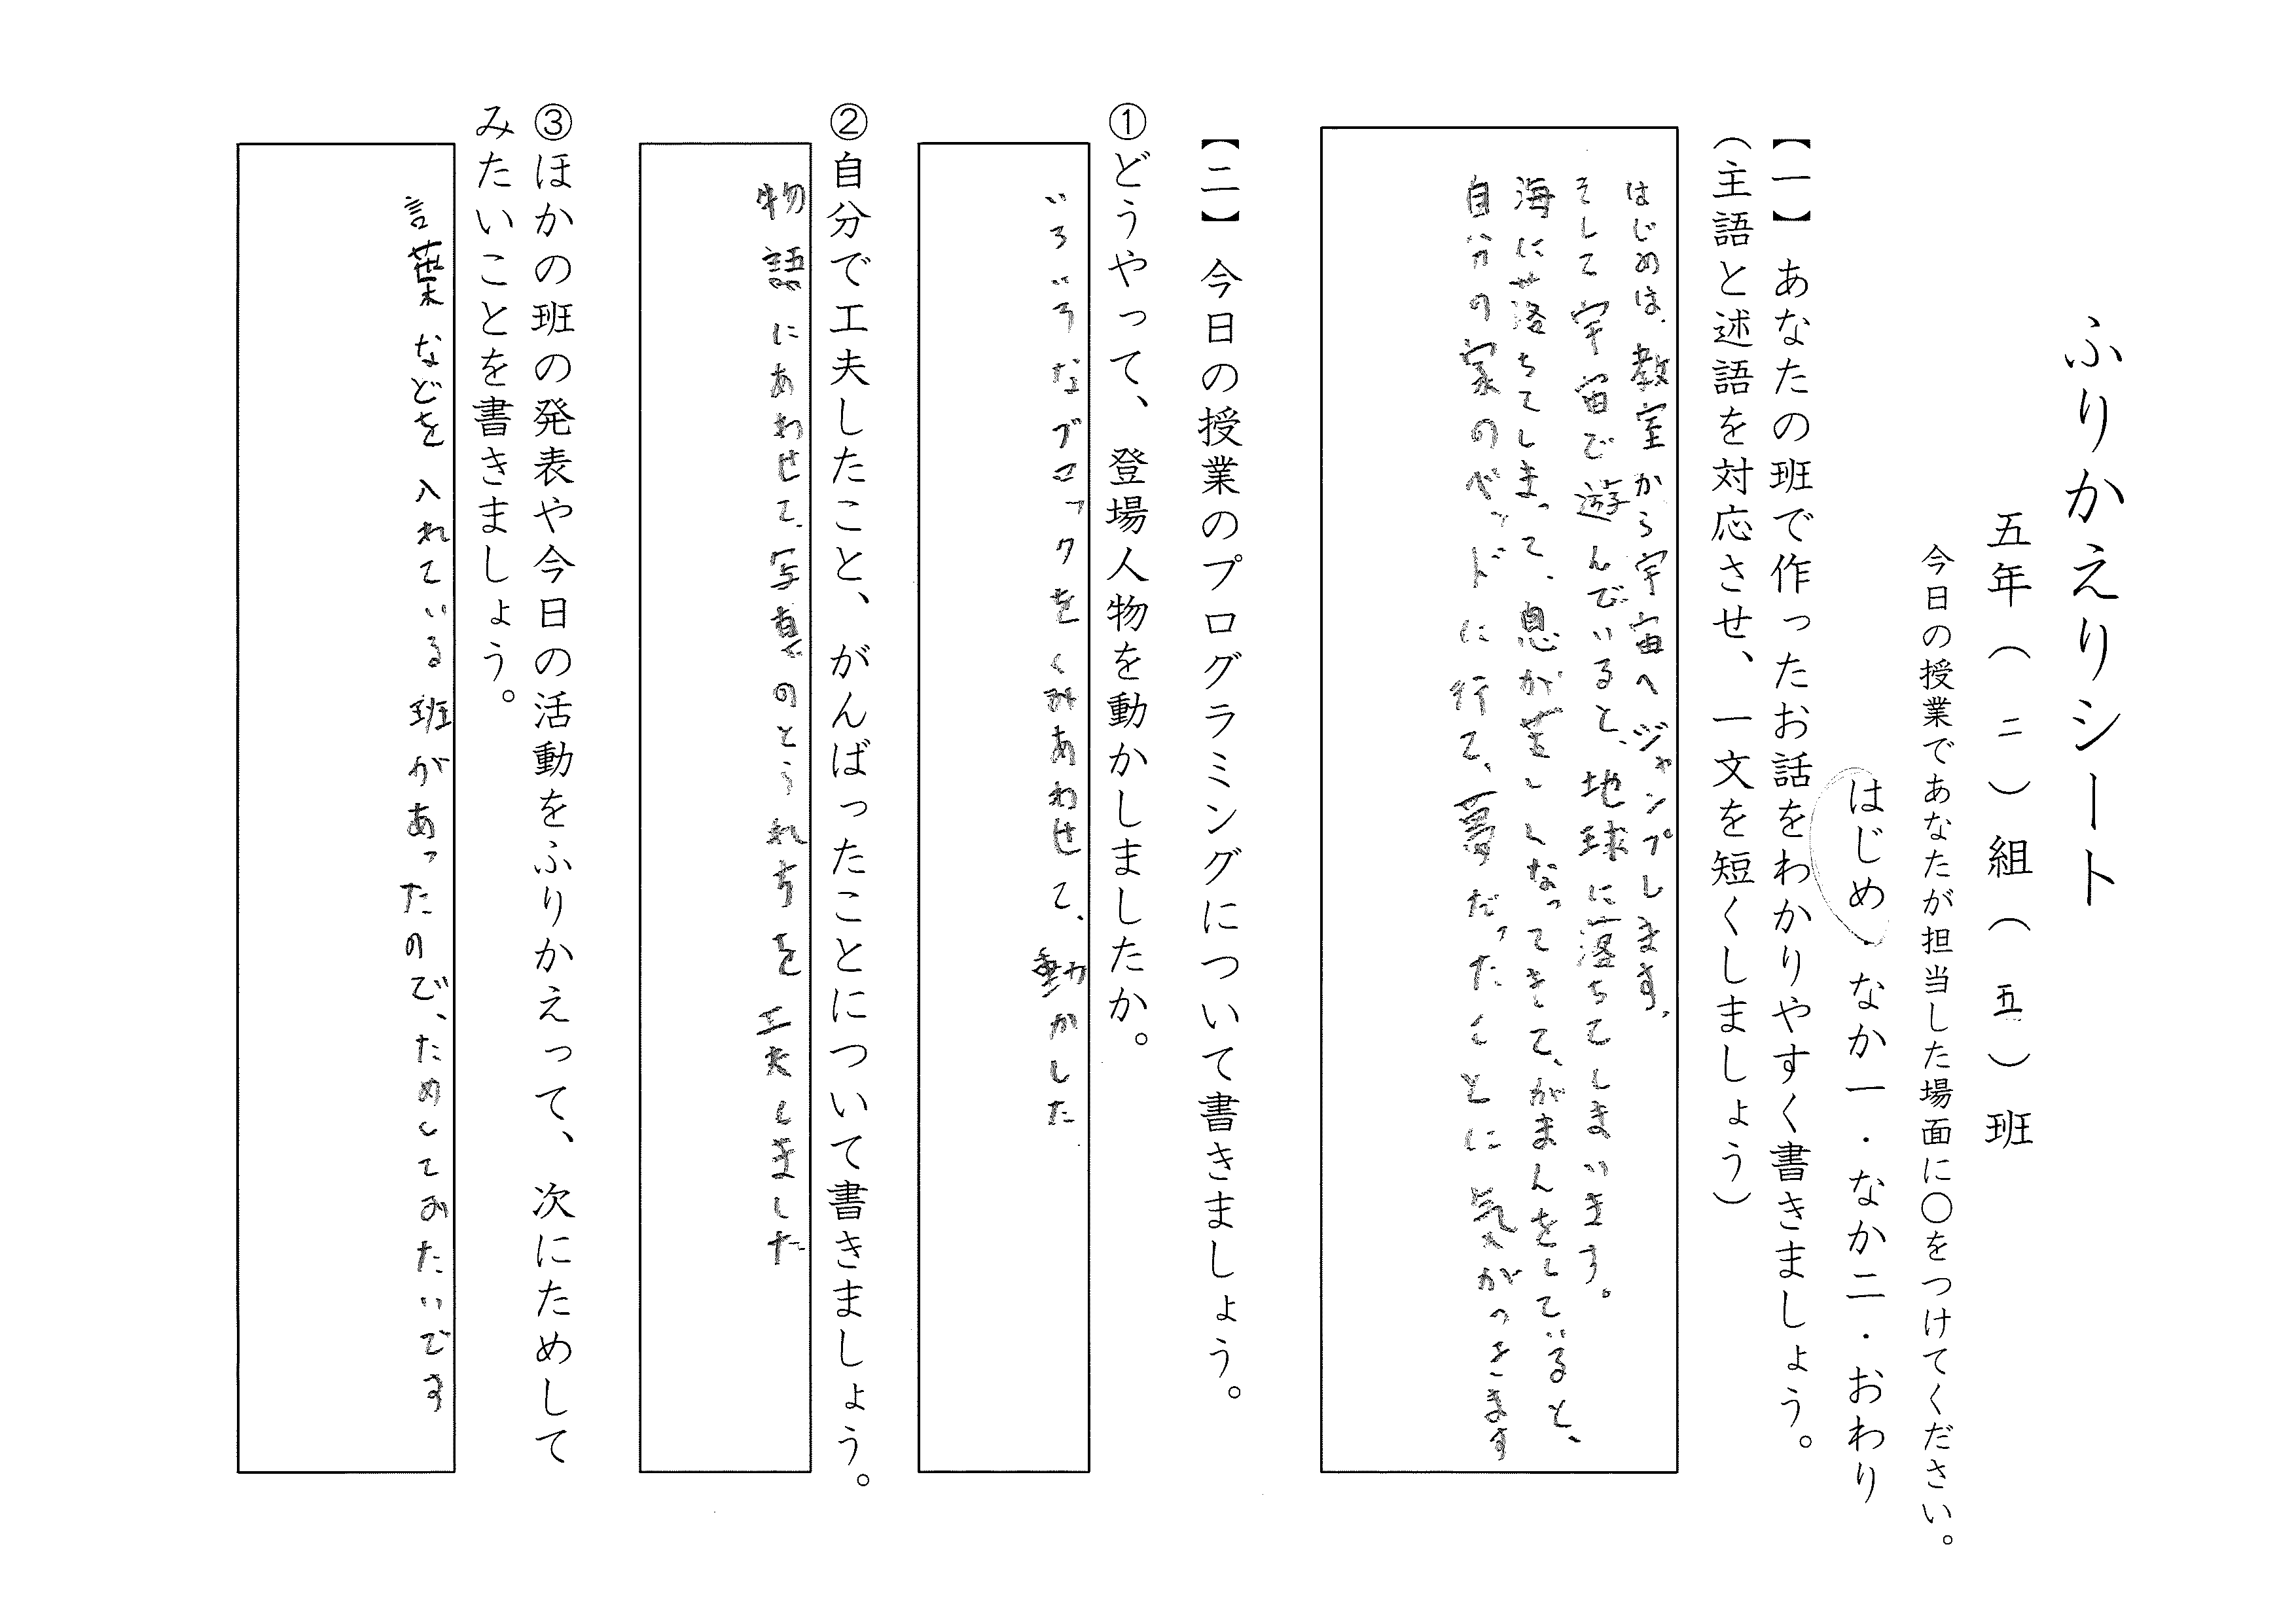 ふりかえりシート
五年（二）組（五）班
今日の授業であなたが担当した場面に〇をつけてください。
はじめ・なか一・なか二・おわり
【一】あなたの班で作ったお話をわかりやすく書きましょう。
（主語と述語を対応させ、一文を短くしましょう）
はじめは、教室から宇宙へジャンプします。
そして宇宙で遊んでいると、地球に落ちてしまいます。
海に落ちてしまって、息が苦しくなってきて、がまんをしていると、
自分の家のベッドに行て、夢だったことに気がつきます
【二】今日の授業のプログラミングについて書きましょう。
①どうやって、登場人物を動かしましたか。
いろいろなブロックをくみあわせて、動かした
②自分で工夫したこと、がんばったことについて書きましょう。
物語にあわせて、写真のとられ方を工夫しました
③ほかの班の発表や今日の活動をふりかえって、次にためして
みたいことを書きましょう。
言葉などを入れている班があったので、ためしてみたいです